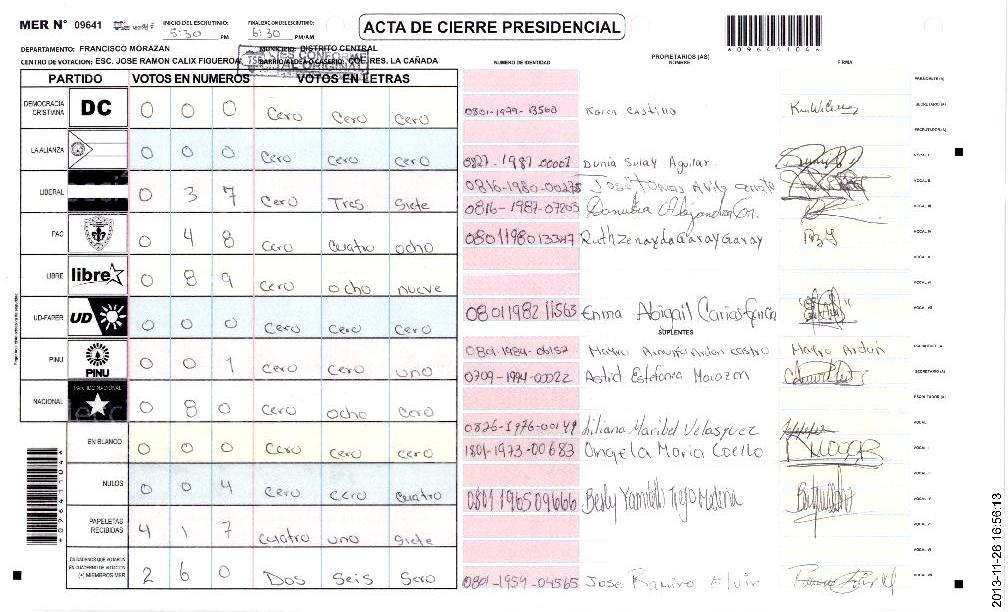 MER N° 09641 INICIO DEL ESCRUTINIO: 5:30 PM FINALIZACION DEL ESCRUTINIO: 6:30 PM/AM
ACTA DE CIERRE PRESIDENCIAL
*09641104*
DEPARTAMENTO: FRANCISCO MORAZAN MUNICIPIO: DISTRITO CENTRAL
CENTRO DE VOTACION: ESC. JOSE RAMON CALIX FIGUEROA BARRIO/ALDEA O CASERIO: COL. RES. LA CAÑADA
ES CONFORME AL ORIGINAL
PARTIDO VOTOS EN NUMEROS VOTOS EN LETRAS
DEMOCRACIA CRISTIANA DC 0 0 0 Cero Cero Cero
LA ALIANZA 0 0 0 Cero cero cero
LIBERAL 0 3 7 Cero Tres Siete
PAC 0 4 8 Cero cuatro ocho
LIBRE libre 0 8 9 cero ocho nueve
UD-FAPER UD 0 0 0 Cero Cero Cero
PINU PINU 0 0 1 Cero Cero uno
NACIONAL PARTIDO NACIONAL 0 8 0 Cero ocho Cero
EN BLANCO 0 0 0 Cero Cero cero
NULOS 0 0 4 Cero cero cuatro
PAPELETAS RECIBIDAS 4 1 7 cuatro uno siete
CIUDADANOS QUE VOTARON EN CUADERNO DE VOTACION (+) MIEMBROS MER 2 6 0 Dos Seis Sero
*09641104*
NUMERO DE IDENTIDAD PROPIETARIOS (AS) NOMBRE FIRMA
PRESIDENTE (A)
0801-1979-13560 Karen Castillo SECRETARIO (A)
ESCRUTADOR (A)
0827-1987-00001 Dunia Sulay Aguilar. VOCAL I
0816-1980-00275 José Tomas Avila VOCAL II
0816-1987-07203 Alejandra VOCAL III
0801198013347 Ruth Zenayda Garay Garay VOCAL IV
VOCAL V
VOCAL VI
0801198211563 Emma Abigail Carias Garcia VOCAL VII
SUPLENTES
0801-1984-06157 Castro Mayro Ardon
0709-1994-00022 Astrid Estefania Morazan SECRETARIO (A)
ESCRUTADOR (A)
0826-1976-00149 Liliana Maribel Velasquez VOCAL I
1801-1973-00683 Angela Maria Coello VOCAL II
VOCAL III
0801 1965 09666 VOCAL IV
VOCAL V
VOCAL VI
0801-1959-04565 Jose Ramiro VOCAL VII
2013-11-26 16:56:13